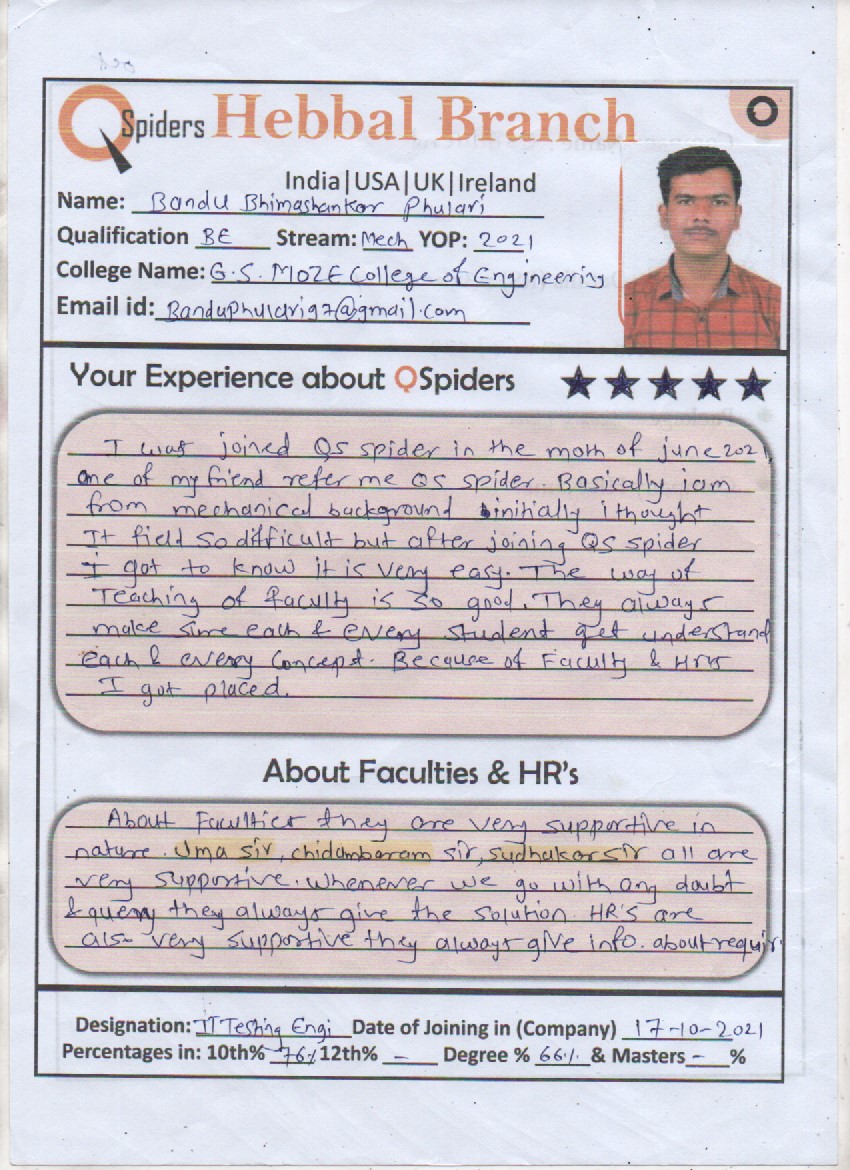 QSpiders Hebbal Branch
India|USA|UK|Ireland
Name: Bandu Bhimashankar Phulari
Qualification BE Stream: Mech YOP: 2021
College Name: G.S. MOZE College of Engineering
Email id: Banduphulari97@gmail.com
Your Experience about QSpiders
I was joined QS spider in the moth of june 2021,
one of my friend refer me QS spider. Basically iam
from mechanical background initially i thought
It field so difficult but after joining QS spider
I got to know it is very easy. The way of
Teaching of faculty is so good. They always
make sure each & every student get understand
each & every concept. Because of Faculty & Hr's
I got placed.
About Faculties & HR's
About Faculties they are very supportive in
nature. Uma sir, chidambaram sir, sudhakar sir all are
very supportive. whenever we go with any doubt
& query they always give the solution. HR's are
also very supportive they always give info. about requir
Designation: IT Testing Engi Date of Joining in (Company) 17-10-2021
Percentages in: 10th% 76% 12th% – Degree % 66% & Masters – %